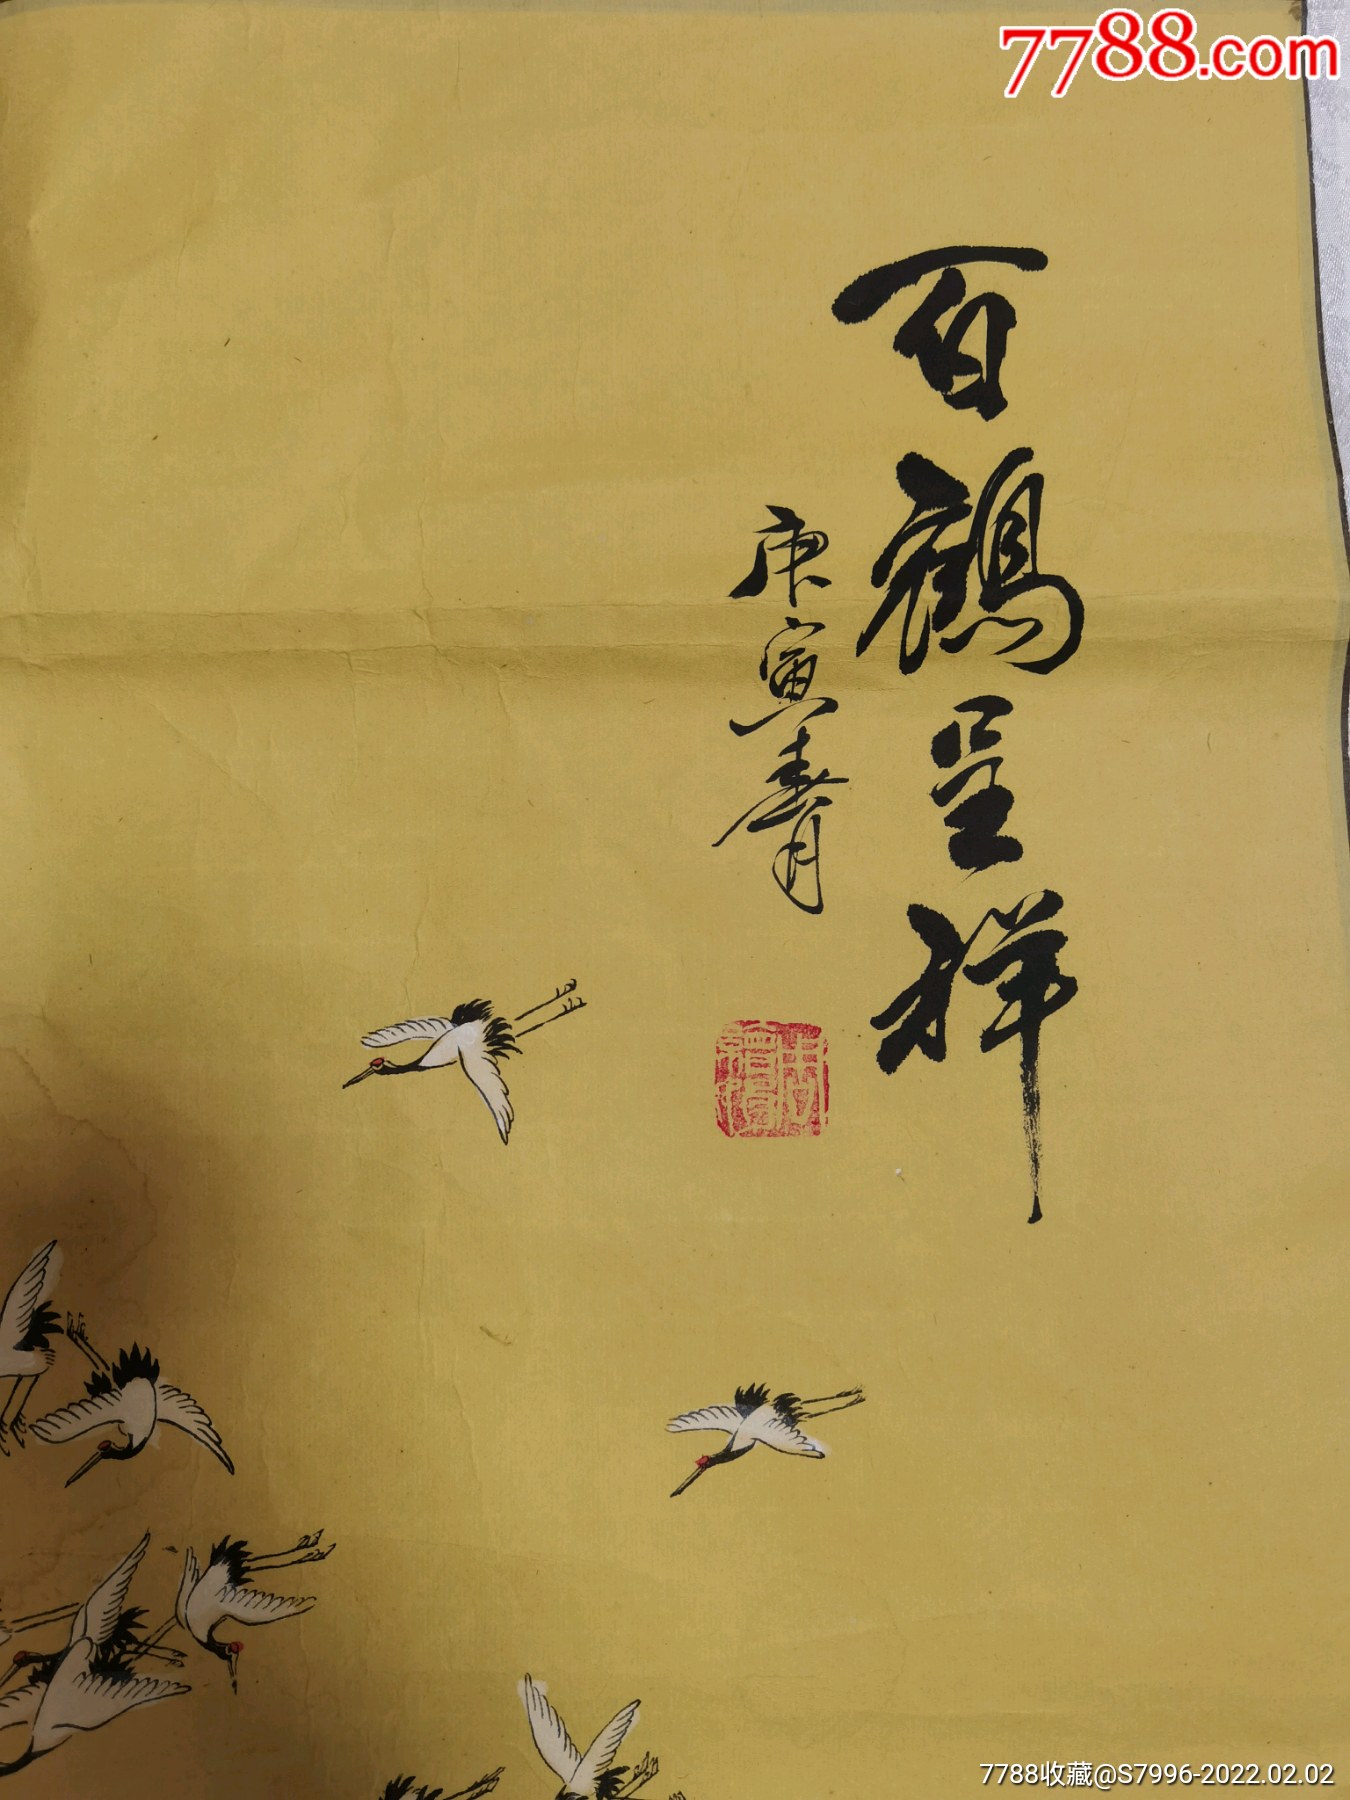 7788.com
百鶴呈祥
庚寅春月
7788收藏@S7996-2022.02.02